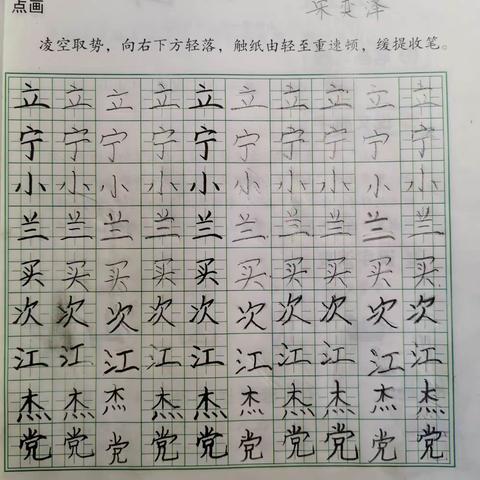 点画
凌空取势，向右下方轻落，触纸由轻至重速顿，缓提收笔。
立立立立立立立立立立
宁宁宁宁宁宁宁宁宁宁
小小小小小小小小小小
兰兰兰兰兰兰兰兰兰兰
买买买买买买买买买买
次次次次次次次次次次
江江江江江江江江江江
杰杰杰杰杰杰杰杰杰杰
党党党党党党党党党党